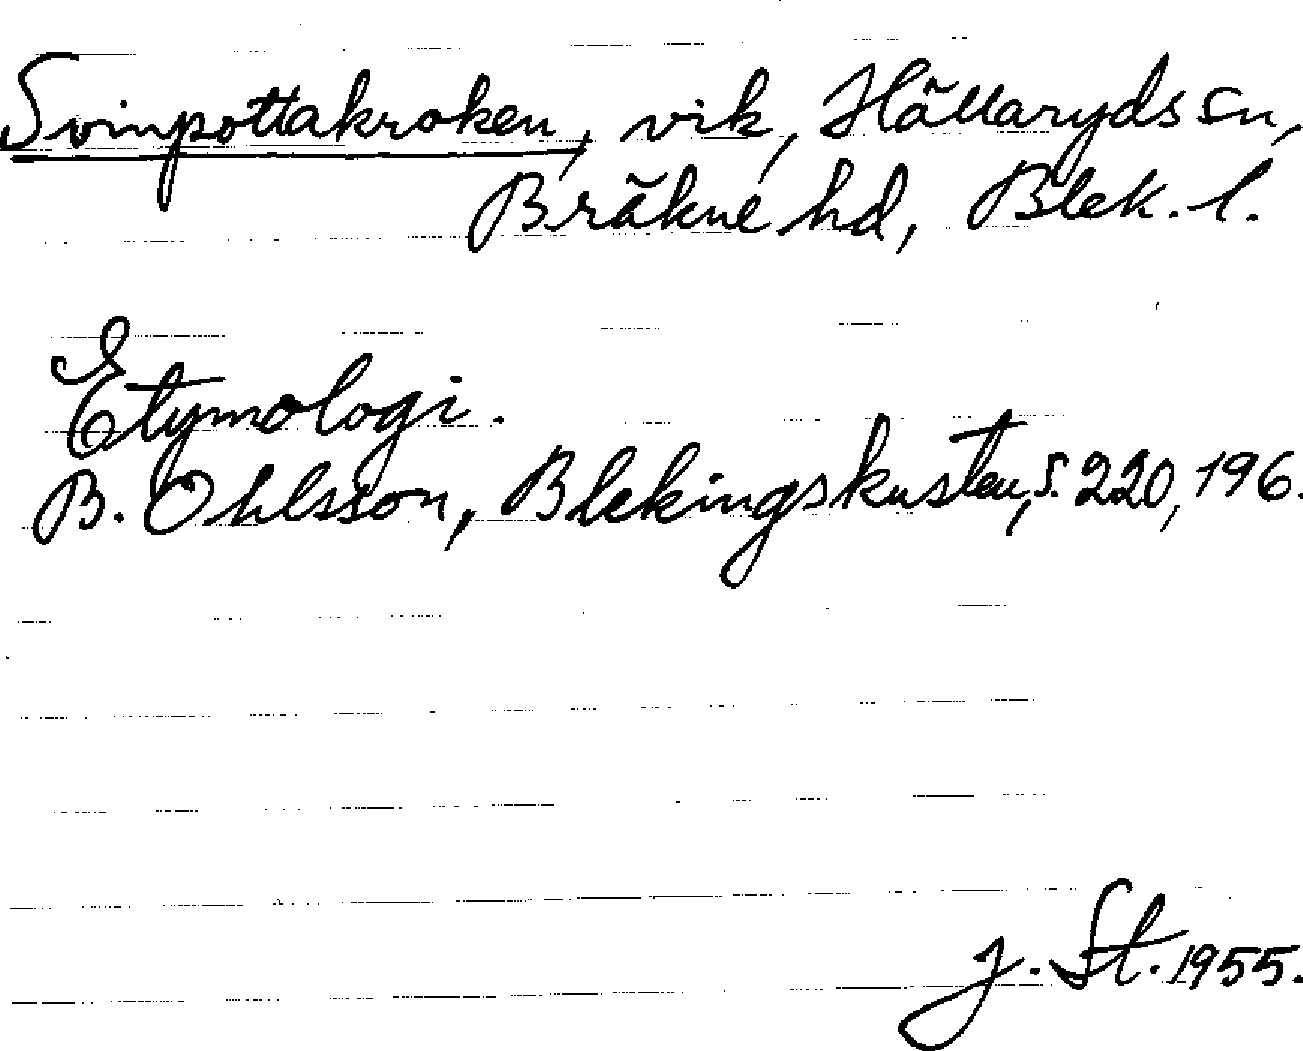 Svinpottakroken, vik, Hällaryds sn,
Bräkne hd, Blek. l.
Etymologi.
B. Ohlsson, Blekingskusten, s. 220, 196.
J. St. 1955.